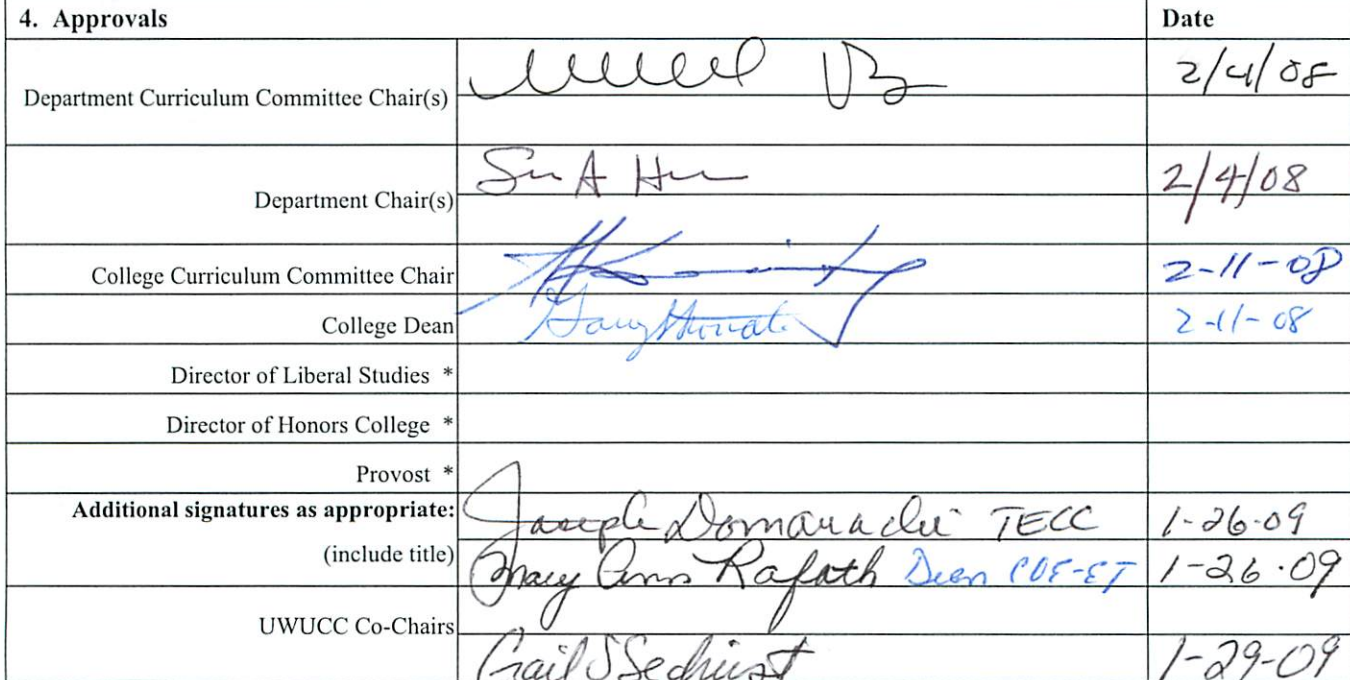 4. Approvals Date
Department Curriculum Committee Chair(s) 2/4/08
Department Chair(s) 2/4/08
College Curriculum Committee Chair 2-11-08
College Dean 2-11-08
Director of Liberal Studies *
Director of Honors College *
Provost *
Additional signatures as appropriate: Joseph Domaracki TECC 1-26-09
(include title) Mary Ann Rafoth Dean COE-ET 1-26-09
UWUCC Co-Chairs
Gail S Sechrist 1-29-09